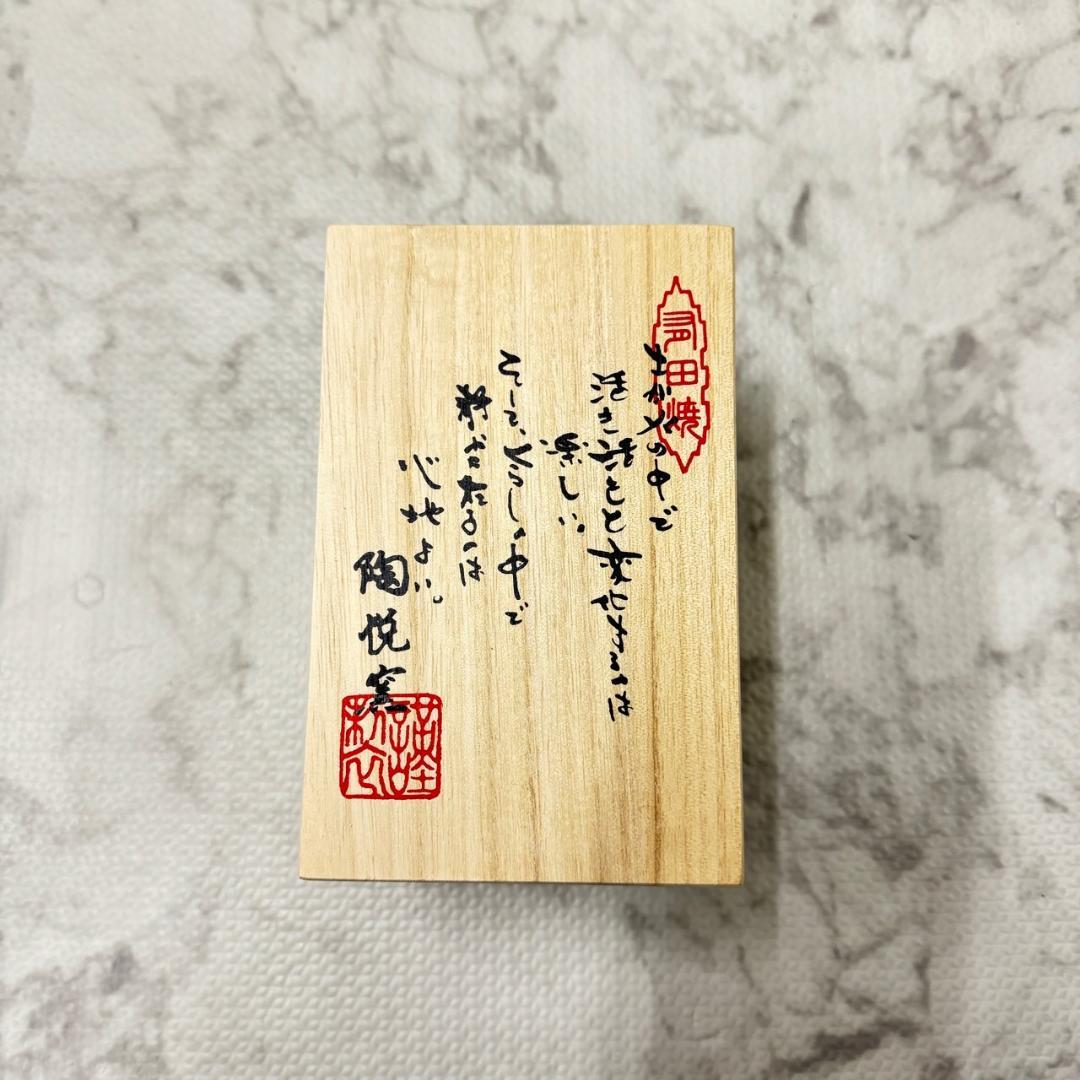 有田焼
土がめの中で
活き活きと変化するのは
楽しい。
そして、くらしの中で
静かに在るのは
心地よい。
陶悦窯
謹製